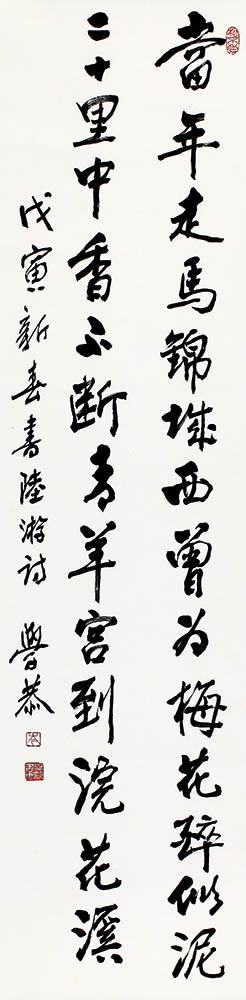 當年走馬錦城西曾为梅花醉似泥
二十里中香不斷青羊宮到浣花溪
戊寅新春書陸游詩 學恭